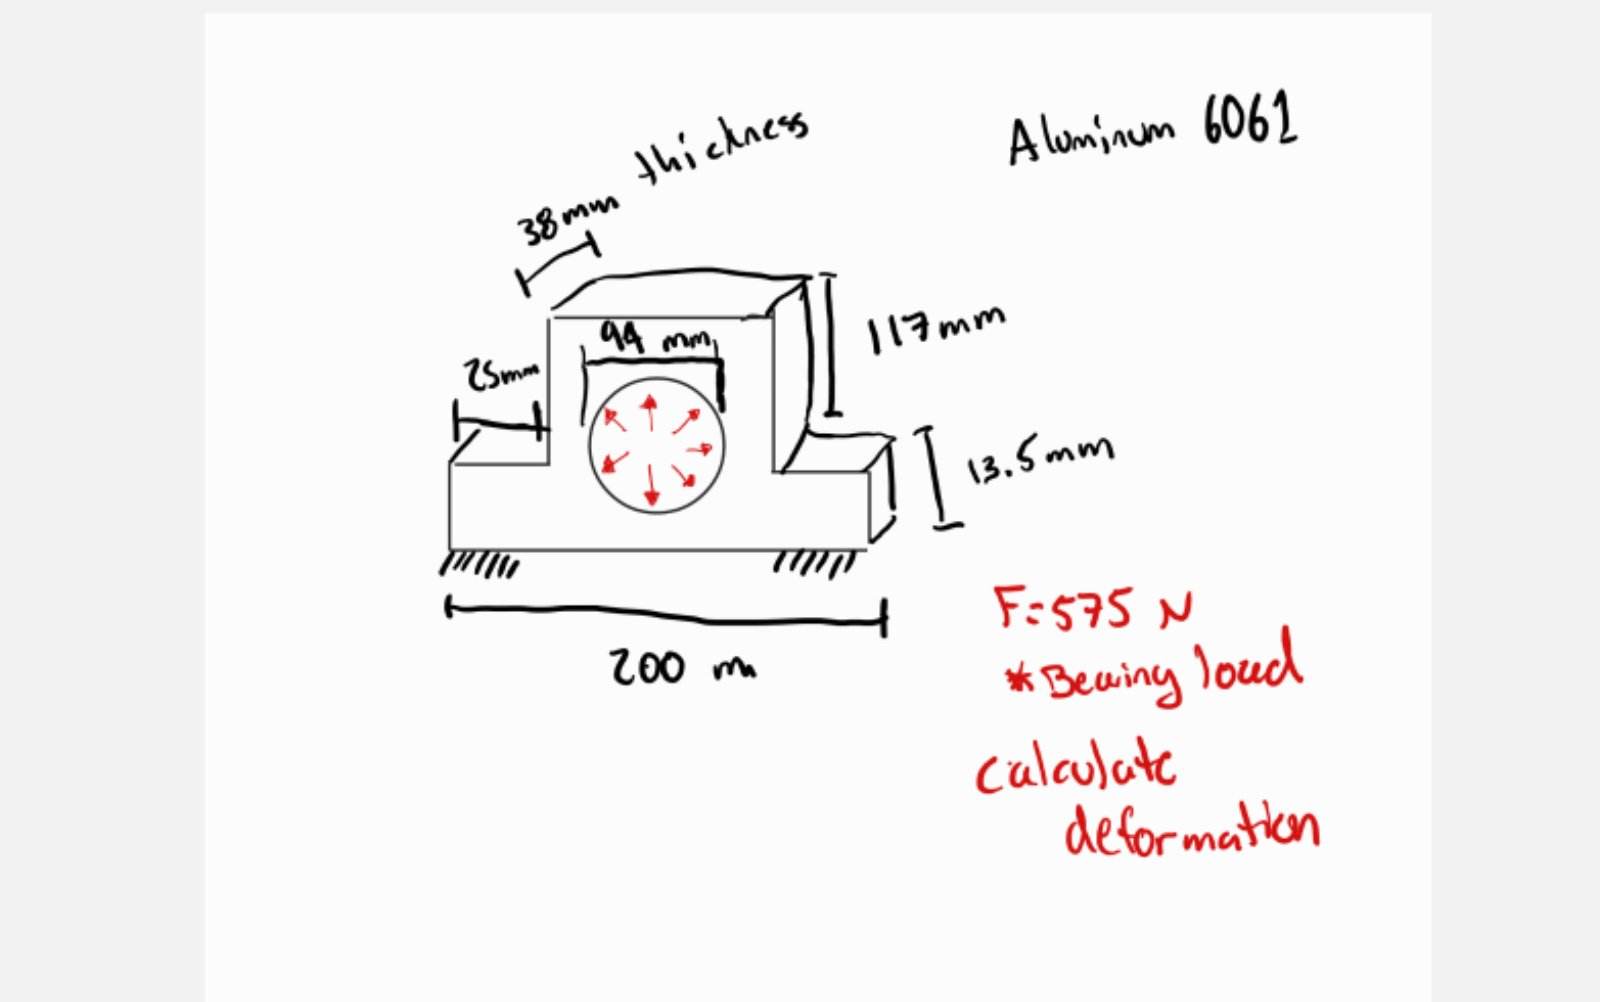 38mm thickness
Aluminum 6061
94 mm
117mm
25mm
13.5mm
200 m
F=575 N
*Bearing load
Calculate
deformation